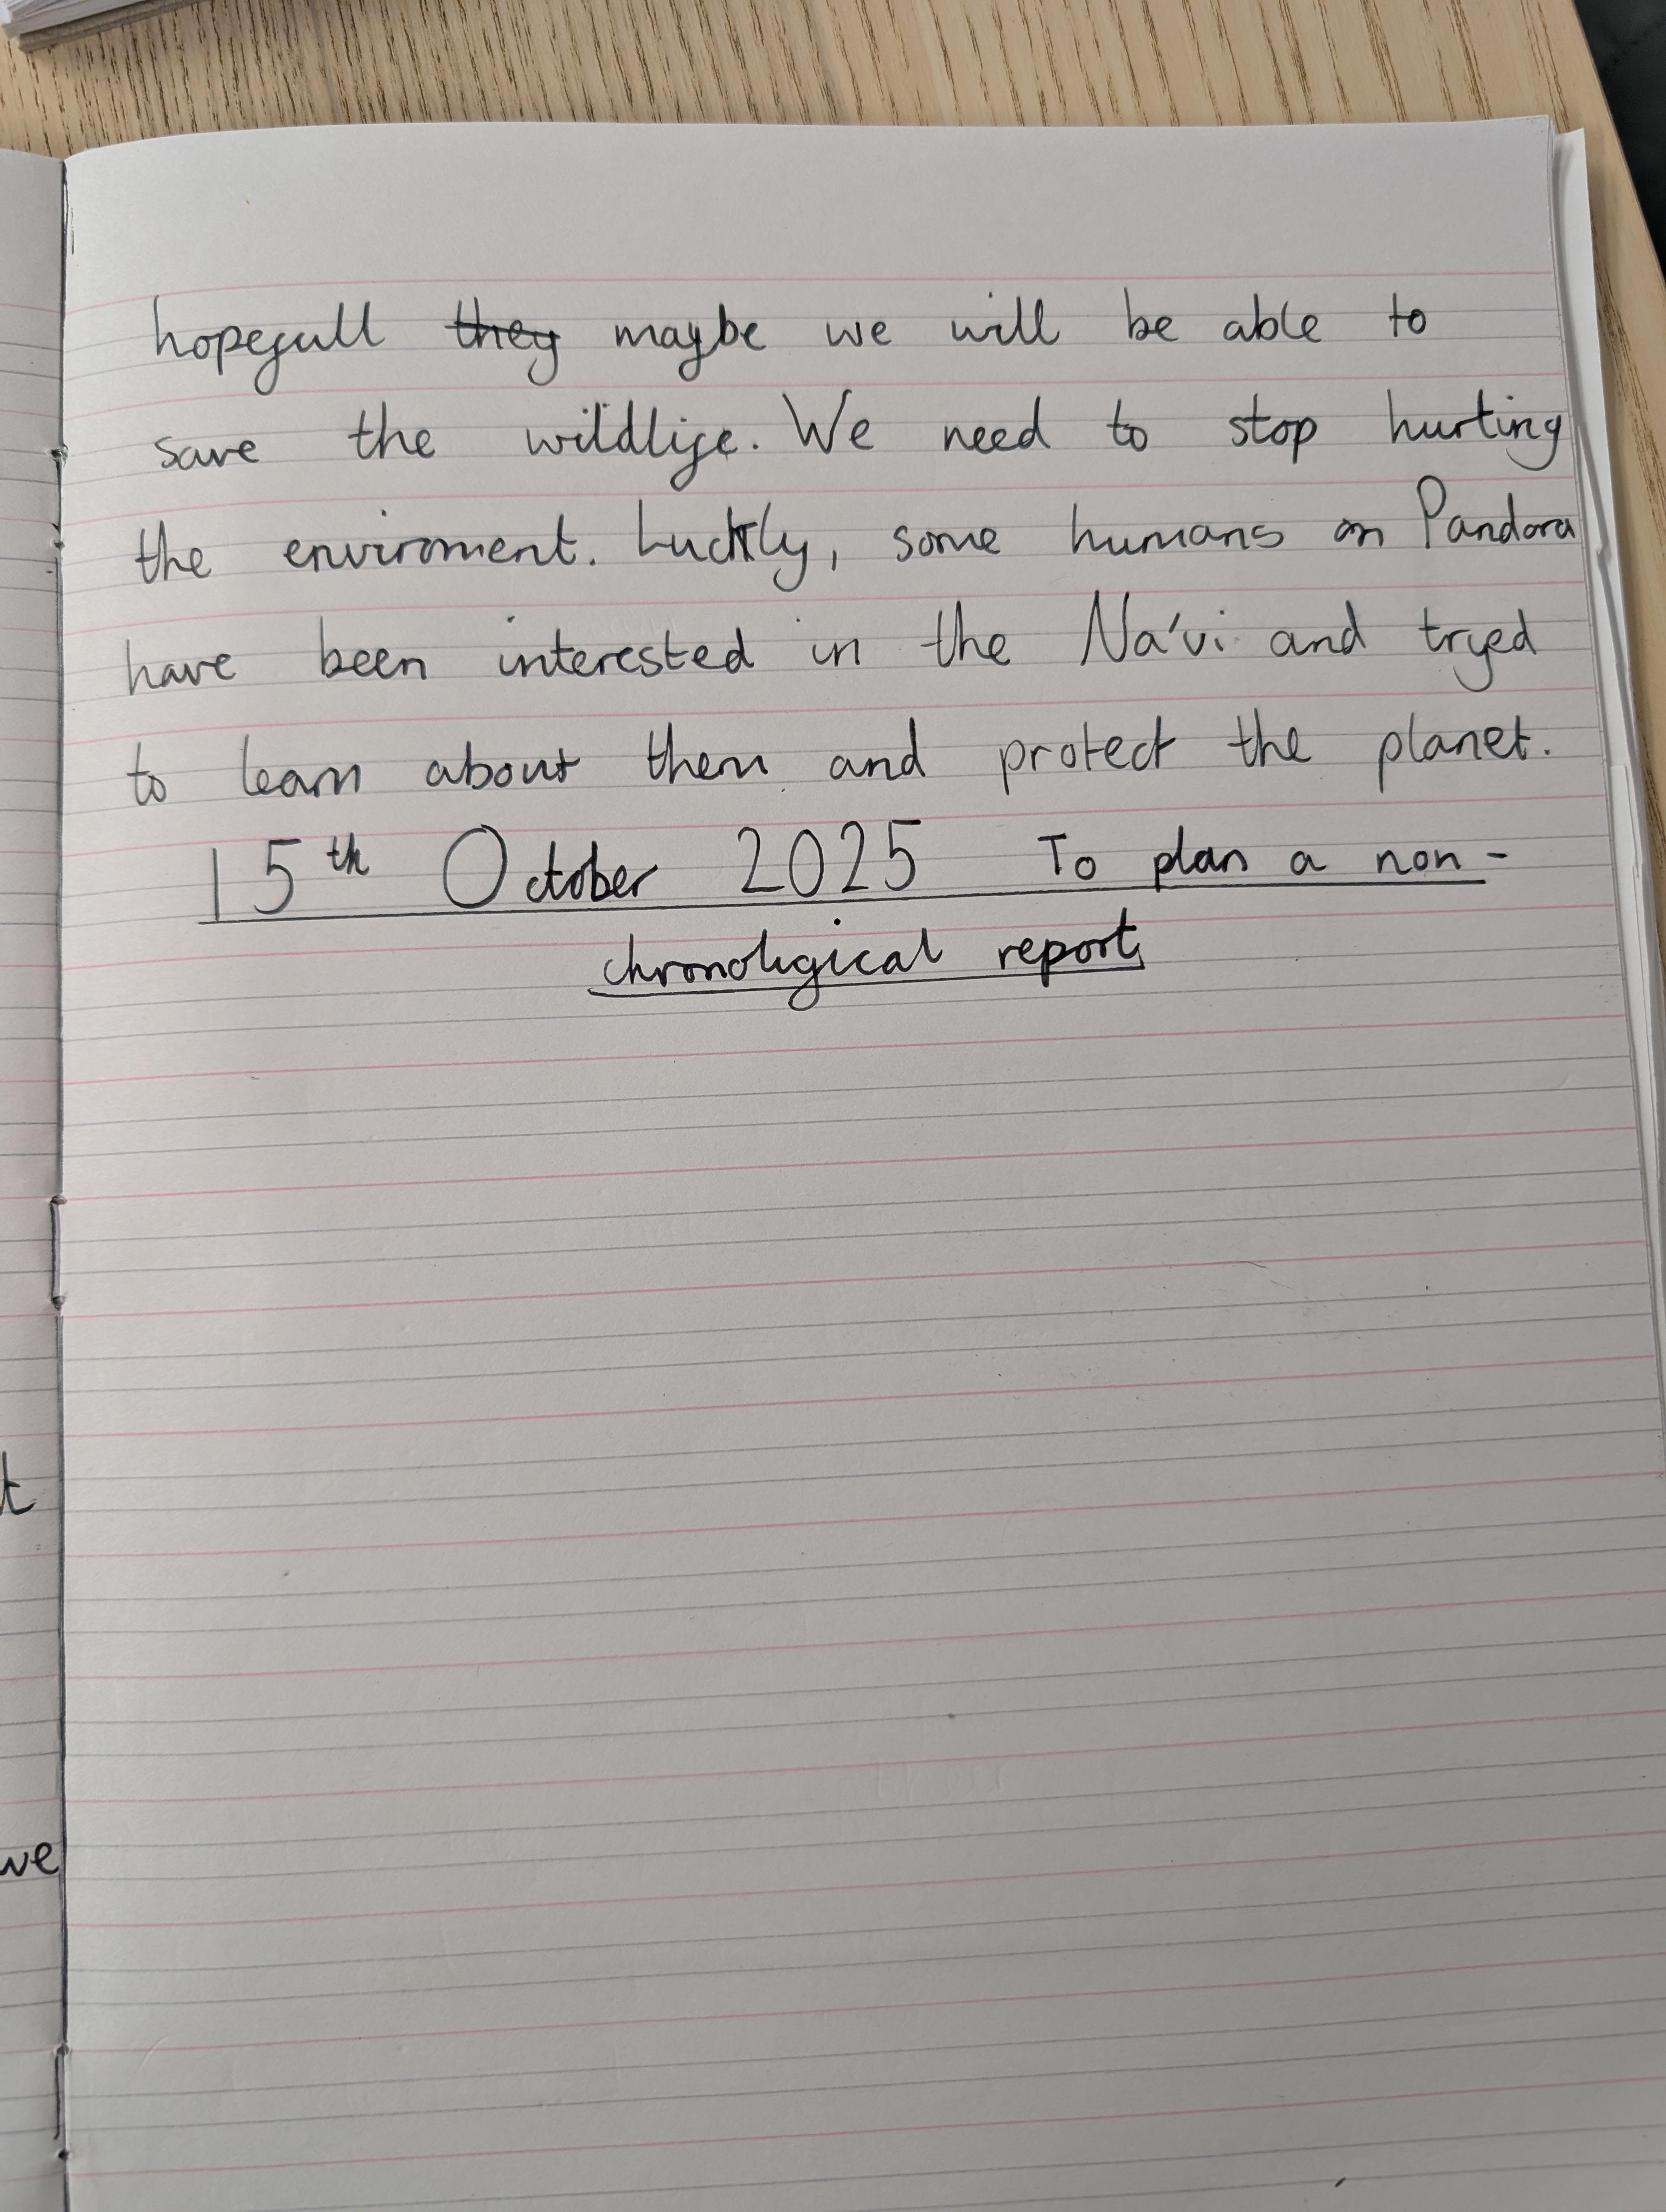 hopefull they maybe we will be able to
save the wildlife. We need to stop hurting
the enviroment. Luckily, some humans on Pandora
have been interested in the Na'vi and tryed
to learn about them and protect the planet.
15th October 2025 To plan a non-
chronoligical report
t
we